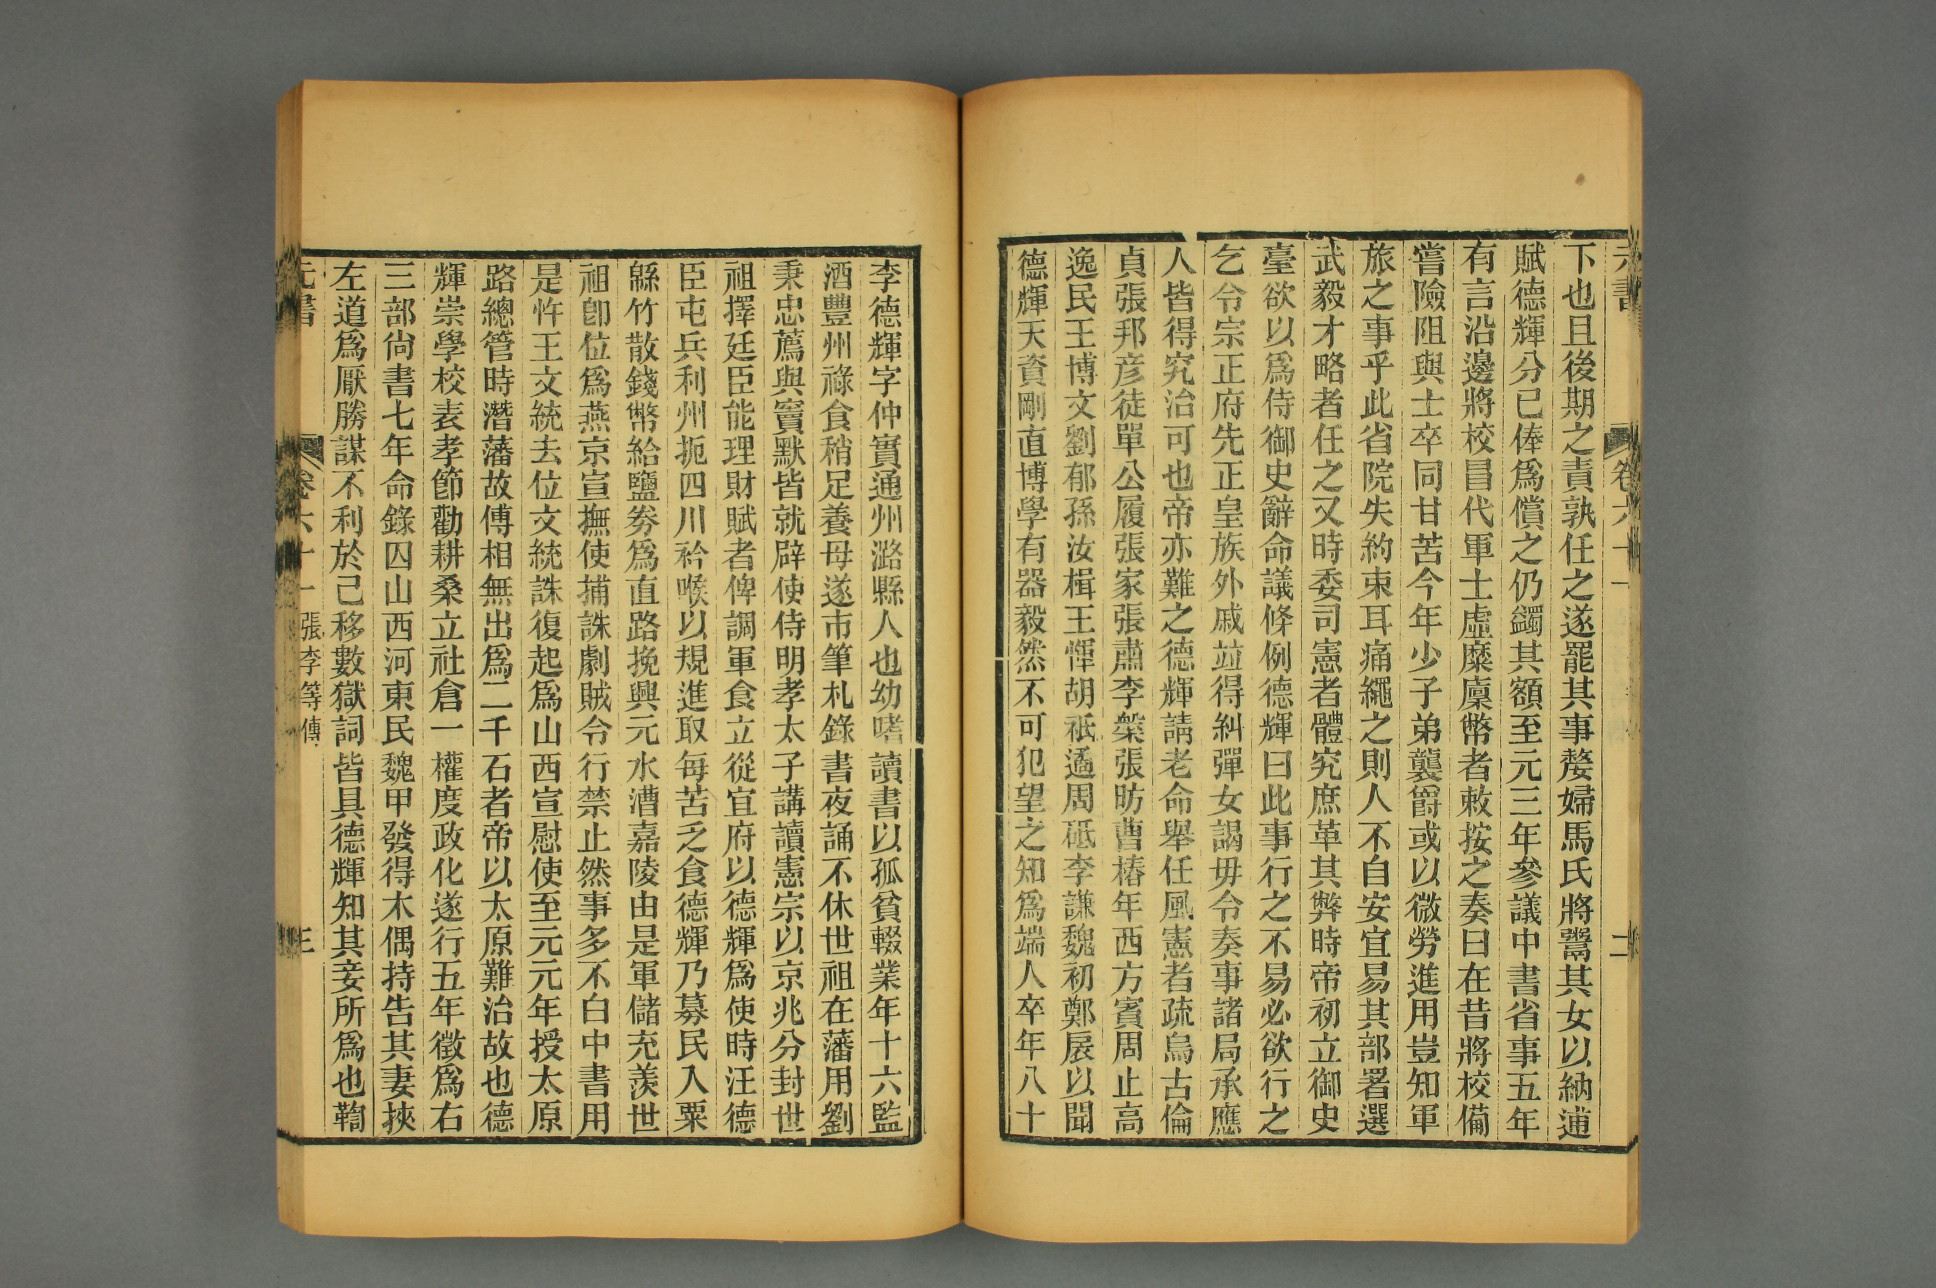 元書 卷六十一 二
下也且後期之責孰任之遂罷其事嫠婦馬氏將鬻其女以納逋
賦德輝分己俸爲償之仍蠲其額至元三年參議中書省事五年
有言沿邊將校冒代軍士虛糜廩幣者敕按之奏曰在昔將校備
嘗險阻與士卒同甘苦今年少子弟襲爵或以微勞進用豈知軍
旅之事乎此省院失約束耳痛繩之則人不自安宜易其部署選
武毅才略者任之又時委司憲者體究庶革其弊時帝初立御史
臺欲以爲侍御史辭命議條例德輝曰此事行之不易必欲行之
乞令宗正府先正皇族外戚竝得糾彈女謁毋令奏事諸局承應
人皆得究治可也帝亦難之德輝請老命舉任風憲者疏烏古倫
貞張邦彥徒單公履張家張肅李槃張昉曹椿年西方賓周止高
逸民王博文劉郁孫汝楫王惲胡祗遹周砥李謙魏初鄭扆以聞
德輝天資剛直博學有器毅然不可犯望之知爲端人卒年八十
李德輝字仲實通州潞縣人也幼嗜讀書以孤貧輟業年十六監
酒豐州祿食稍足養母遂市筆札錄書夜誦不休世祖在藩用劉
秉忠薦與竇默皆就辟使侍明孝太子講讀憲宗以京兆分封世
祖擇廷臣能理財賦者俾調軍食立從宜府以德輝爲使時汪德
臣屯兵利州扼四川衿喉以規進取每苦乏食德輝乃募民入粟
緜竹散錢幣給鹽券爲直路挽興元水漕嘉陵由是軍儲充羨世
祖卽位爲燕京宣撫使捕誅劇賊令行禁止然事多不白中書用
是忤王文統去位文統誅復起爲山西宣慰使至元元年授太原
路總管時潛藩故傅相無出爲二千石者帝以太原難治故也德
輝崇學校表孝節勸耕桑立社倉一權度政化遂行五年徵爲右
三部尙書七年命錄囚山西河東民魏甲發得木偶持告其妻挾
左道爲厭勝謀不利於己移數獄詞皆具德輝知其妾所爲也鞫
元書 卷六十一 張李等傳 三